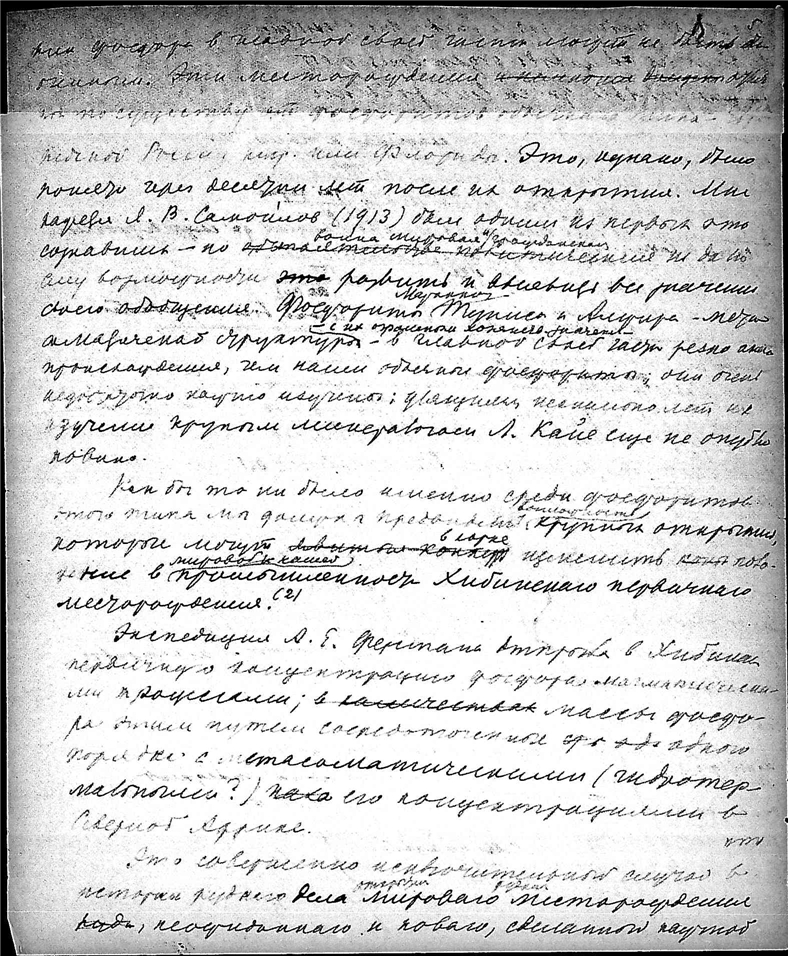 фосфора в главной своей части могут не быть
Эти месторождения
по существу от фосфоритов обычного типа
Росси, или Флориды. Это, однако, было
понято через десятки лет после их открытия. Мне
кажется Я. В. Самойлов (1913) был одним из первых это
сознавших – но война мировая и гражданская не дали
ему возможности это развить и выявить все значение
своего обобщения. Фосфориты Марокко Туниса и Алжира – мета
структуры – с их огромным значением – в главной своей части резко
происхождения, чем наши обычные фосфориты; они очень
недостаточно научно изучены; несколько лет их
изучение крупным минералогом Л. Кайе еще не опубли
ковано.
Как бы то ни было именно среди фосфоритов
этого типа мы должны предвидеть возможность крупных открытий,
которые могут в корне изменить поло-
жение в мировой и нашей промышленности Хибинского первичного
месторождения. (2)
Экспедиция А. Е. Ферсмана открыла в Хибинах
первичную концентрацию фосфора магматически-
ми процессами; в количествах массы фосфо-
ра этим путем сосредоточенные одного
порядка с метасоматическими (гидротер
мальными?) его концентрациями в
Северной Африке.
Это совершенно исключительный случай в
истории рудного дела открытия мирового месторождения
неожиданного и нового, сделанной научной